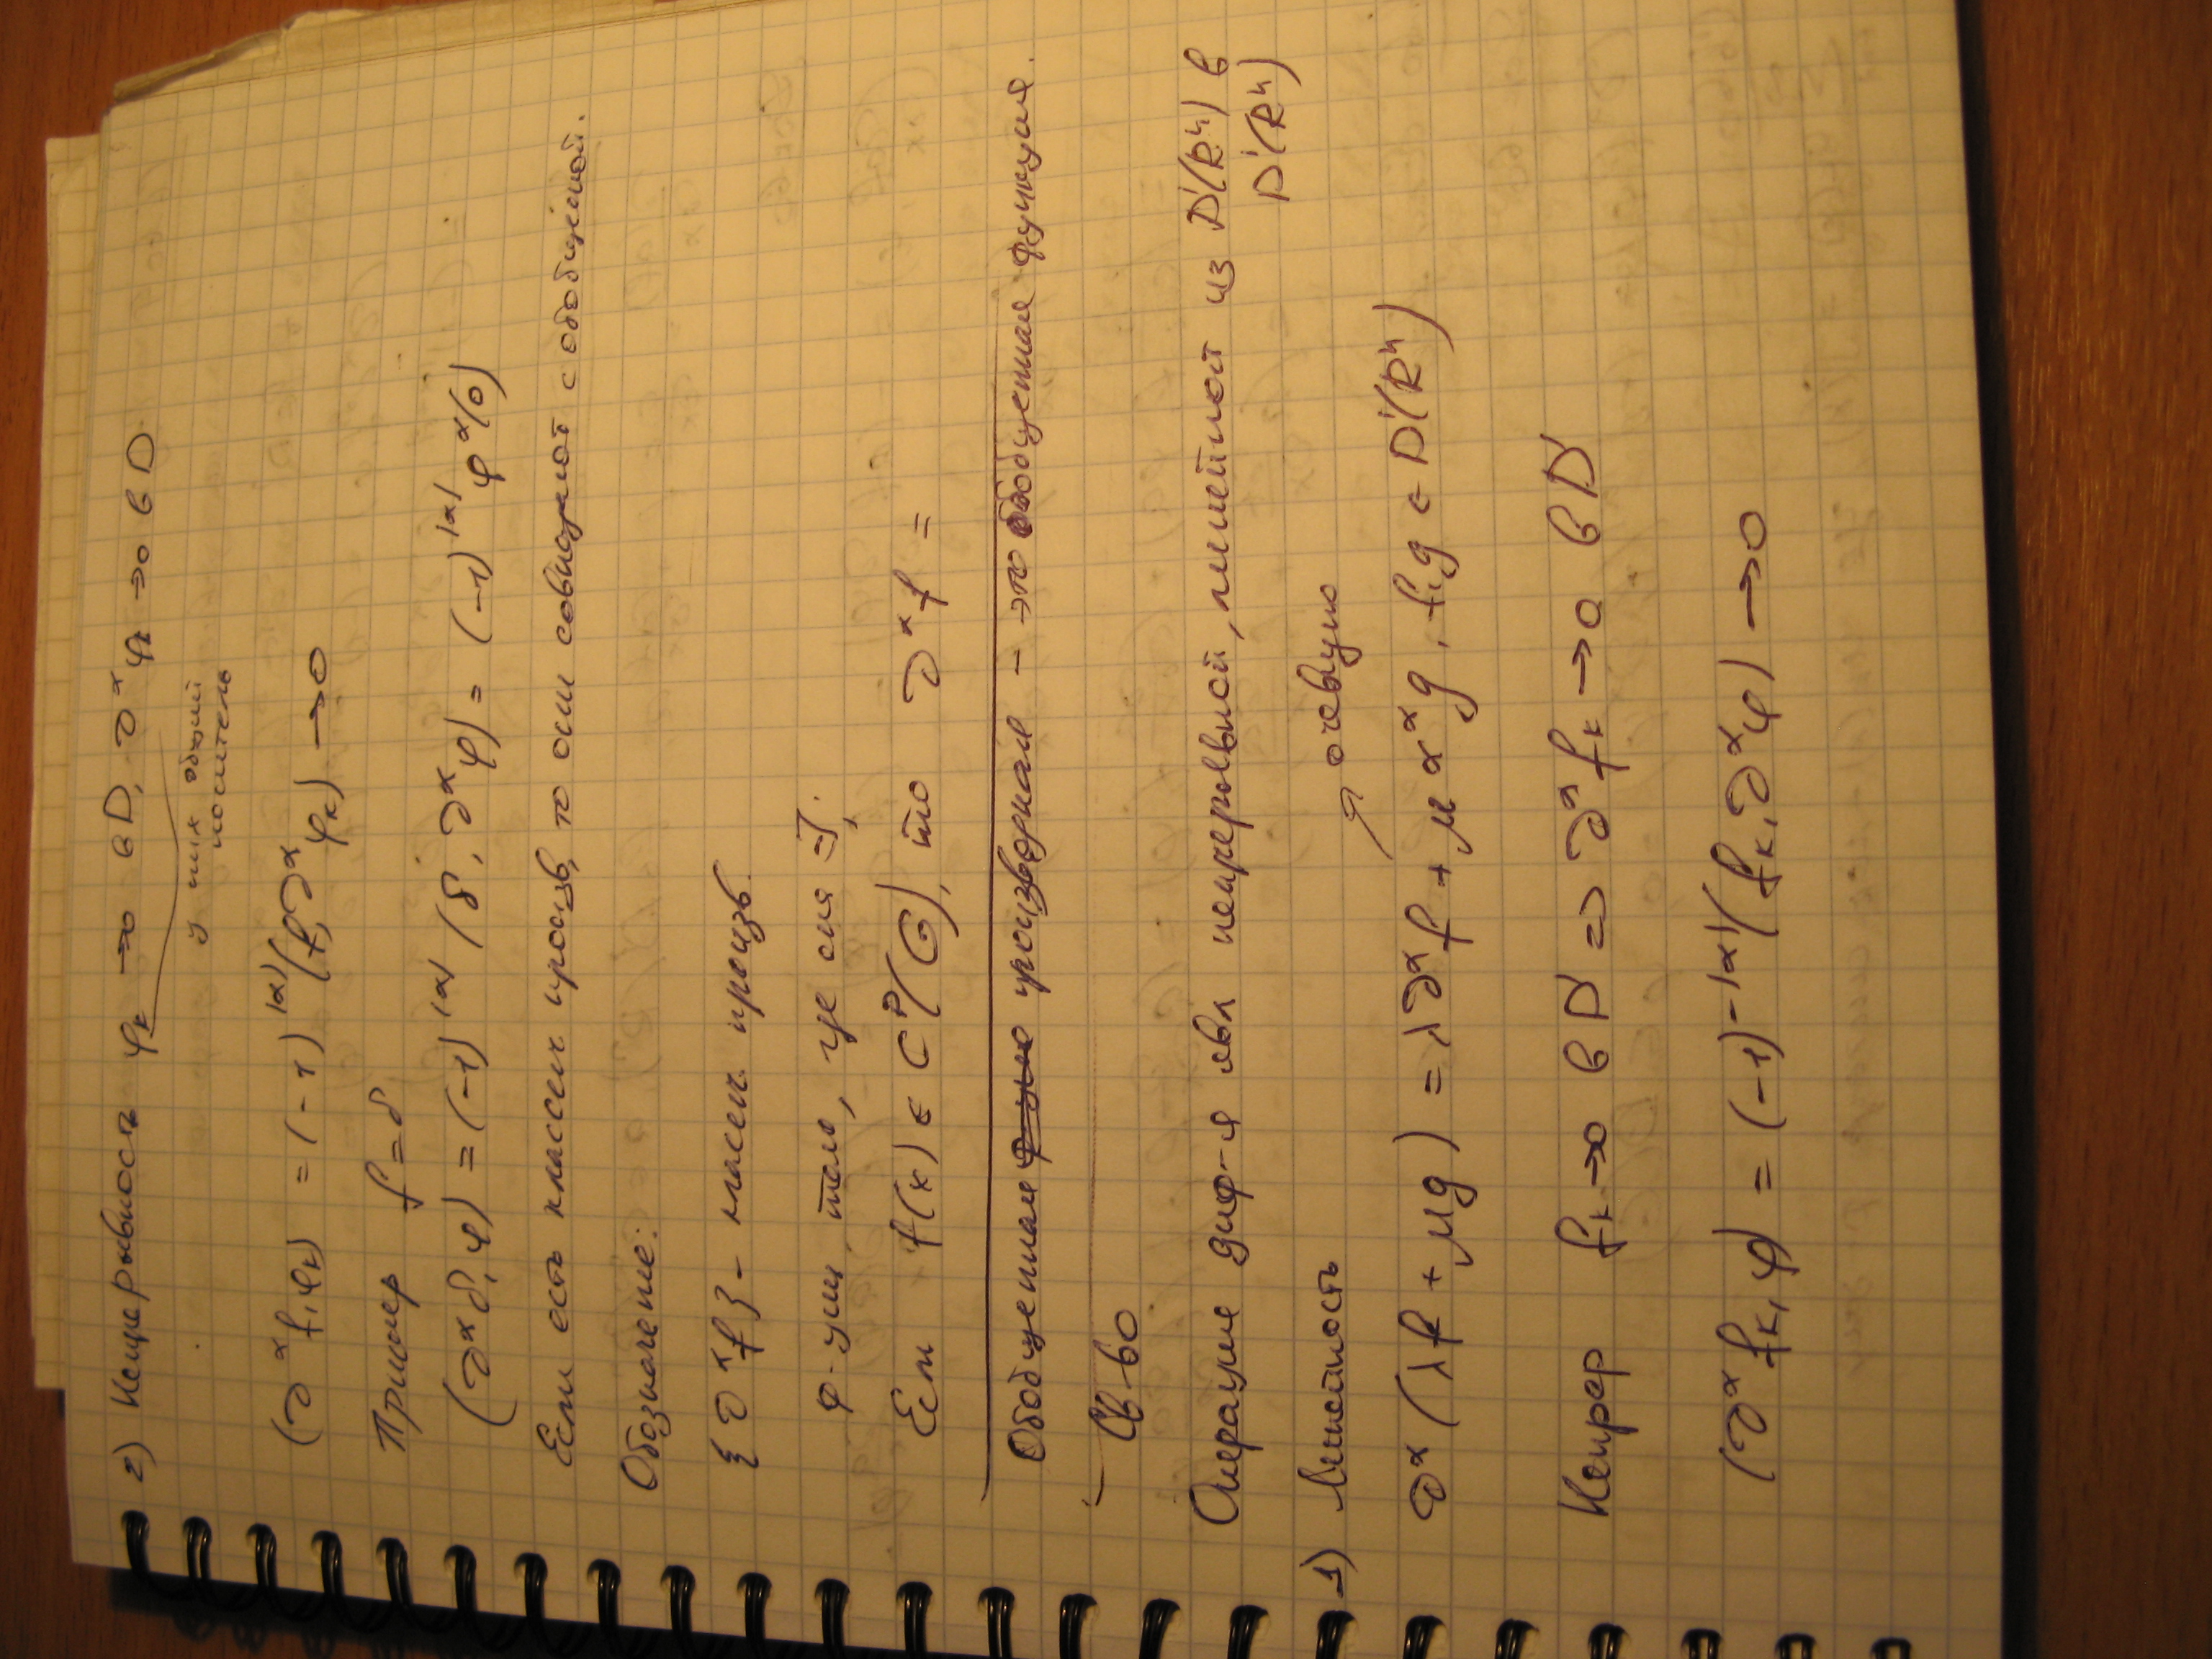 2) Непрерывность φₖ → 0 в D, ∂^α φₖ → 0 в D
у них общий
носитель
(∂^α f, φₖ) = (-1)^|α| (f, ∂^α φₖ) → 0
Пример f = δ
(∂^α δ, φ) = (-1)^|α| (δ, ∂^α φ) = (-1)^|α| φ^α(0)
Если есть классич произв, то они совпадают с обобщенной.
Обозначение:
{∂^α f} - классич. произв.
ф-ции там, где она ∃,
Если f(x) ∈ C^p(G), то ∂^α f =
Обобщенная производная - это обобщенная функция.
Св-во
Операция диф-я явл непрерывной, линейной из D'(Rⁿ) в
D'(Rⁿ)
1) Линейность → очевидно
∂^α(λf + μg) = λ∂^α f + μ α^α g, f, g ∈ D'(Rⁿ)
Непрер fₖ → 0 в D' => ∂^α fₖ → 0 в D'
(∂^α fₖ, φ) = (-1)^-|α| (fₖ, ∂^α φ) → 0